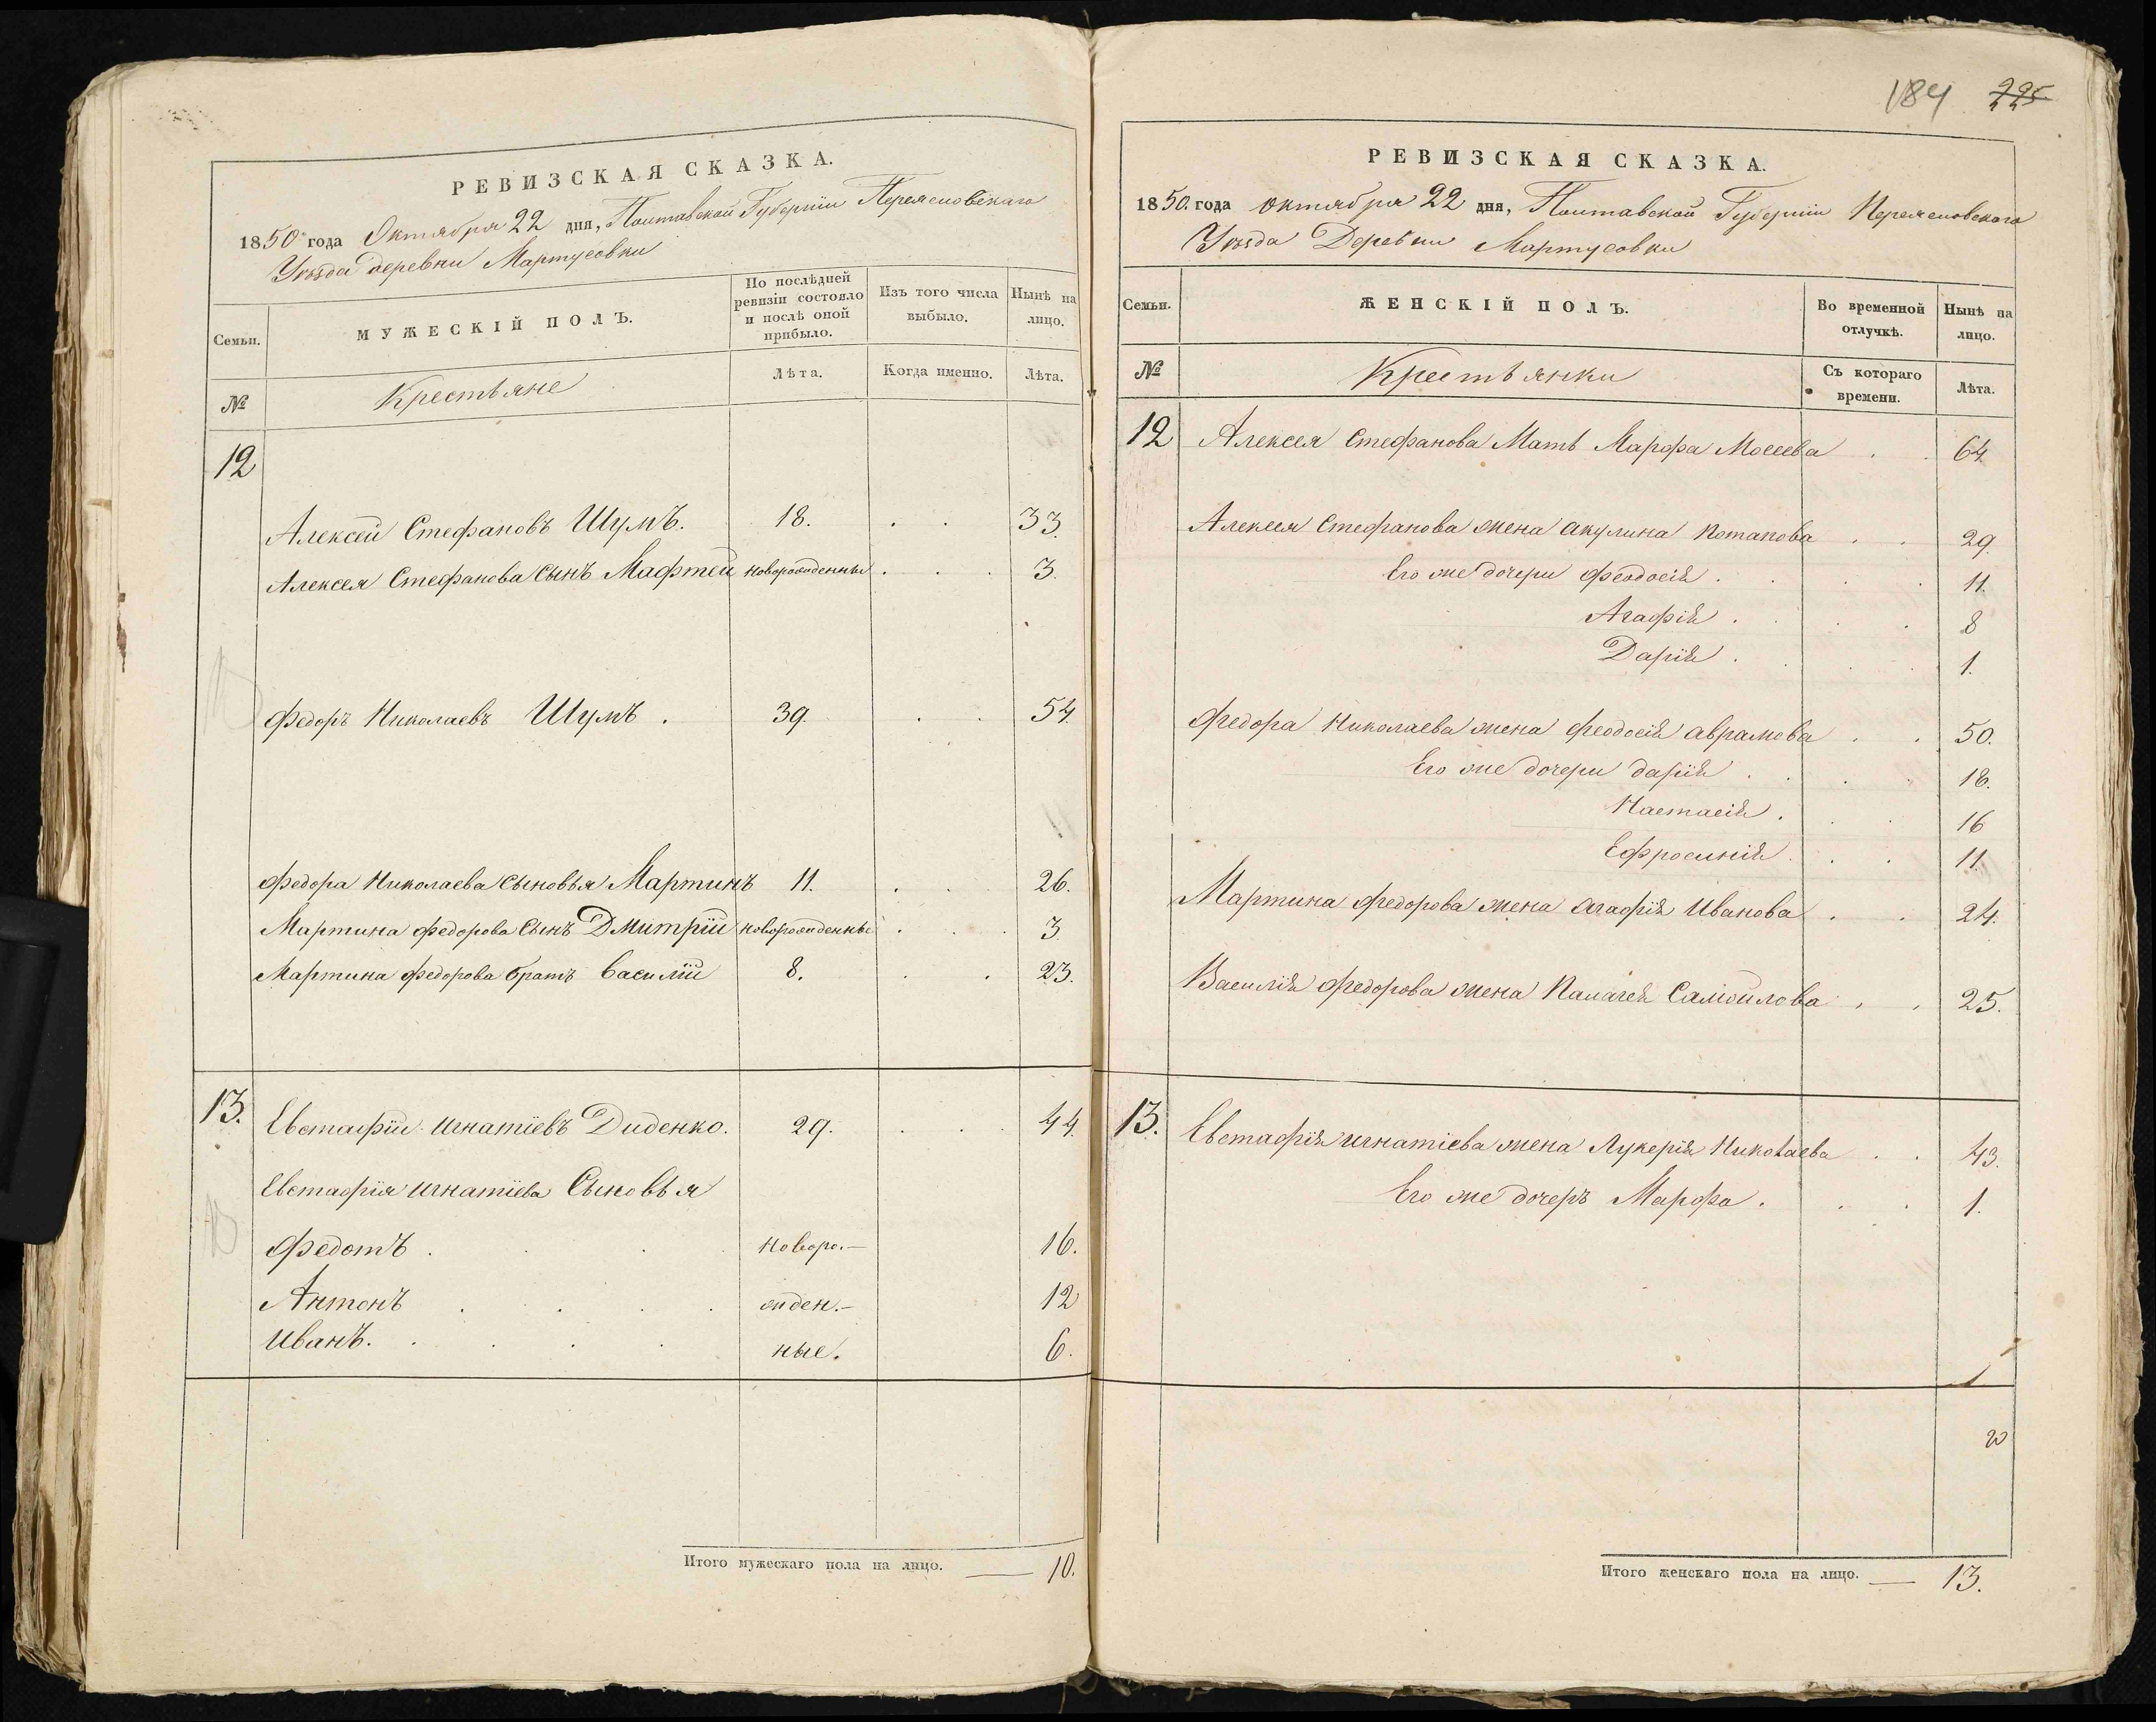 РЕВИЗСКАЯ СКАЗКА.
1850 года Октября 22 дня, Полтавской Губернии Переясловскаго
Уѣзда деревни Мартусовки
Семьи.
МУЖЕСКІЙ ПОЛЪ.
По послѣдней ревизіи состояло и послѣ оной прибыло.
Изъ того числа выбыло.
Нынѣ на лицо.
№
Крестьяне
Лѣта.
Когда именно.
Лѣта.
12
Алексей Стефановъ Шумъ. 18. 33.
Алексея Стефанова Сынъ Мафтей новорожденный 3.
Федоръ Николаевъ Шумъ. 39. 54.
Федора Николаева Сыновья Мартинъ 11. 26.
Мартина Федорова Сынъ Дмитрій новорожденный 3
Мартина Федорова братъ Василій 8. 23.
13. Евстафій Игнатіевъ Диденко. 29. 44.
Евстафія Игнатіева Сыновья
Федотъ новоро.— 16.
Антонъ жден.— 12
Иванъ. ные. 6.
Итого мужескаго пола на лицо. — 10.
184 225
РЕВИЗСКАЯ СКАЗКА.
1850. года Октября 22 дня, Полтавской Губерніи Переясловскаго
Уѣзда Деревни Мартусовки
Семьи.
ЖЕНСКІЙ ПОЛЪ.
Во временной отлучкѣ.
Нынѣ на лицо.
№
Крестьянки
Съ котораго времени.
Лѣта.
12 Алексея Стефанова Мать Марфа Мосеева 64.
Алексея Стефанова жена Акулина Потапова 29.
Его же дочери Феодосія. 11.
Агафія. 8
Дарія. 1.
Федора Николаева жена Феодосія Аврамова 50.
Его же дочери Дарія 18.
Настасія. 16
Ефросинія. 11.
Мартина Федорова жена Агафія Иванова 24.
Василія Федорова жена Палагея Самойлова 25.
13. Евстафія Игнатіева жена Лукерія Николаева 43.
Его же дочеръ Марфа. 1.
Итого женскаго пола на лицо. — 13.